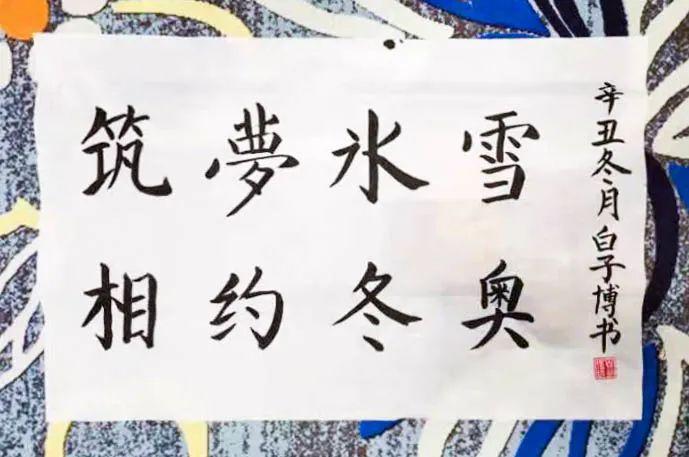 筑夢氷雪
相约冬奥
辛丑冬月白子博书